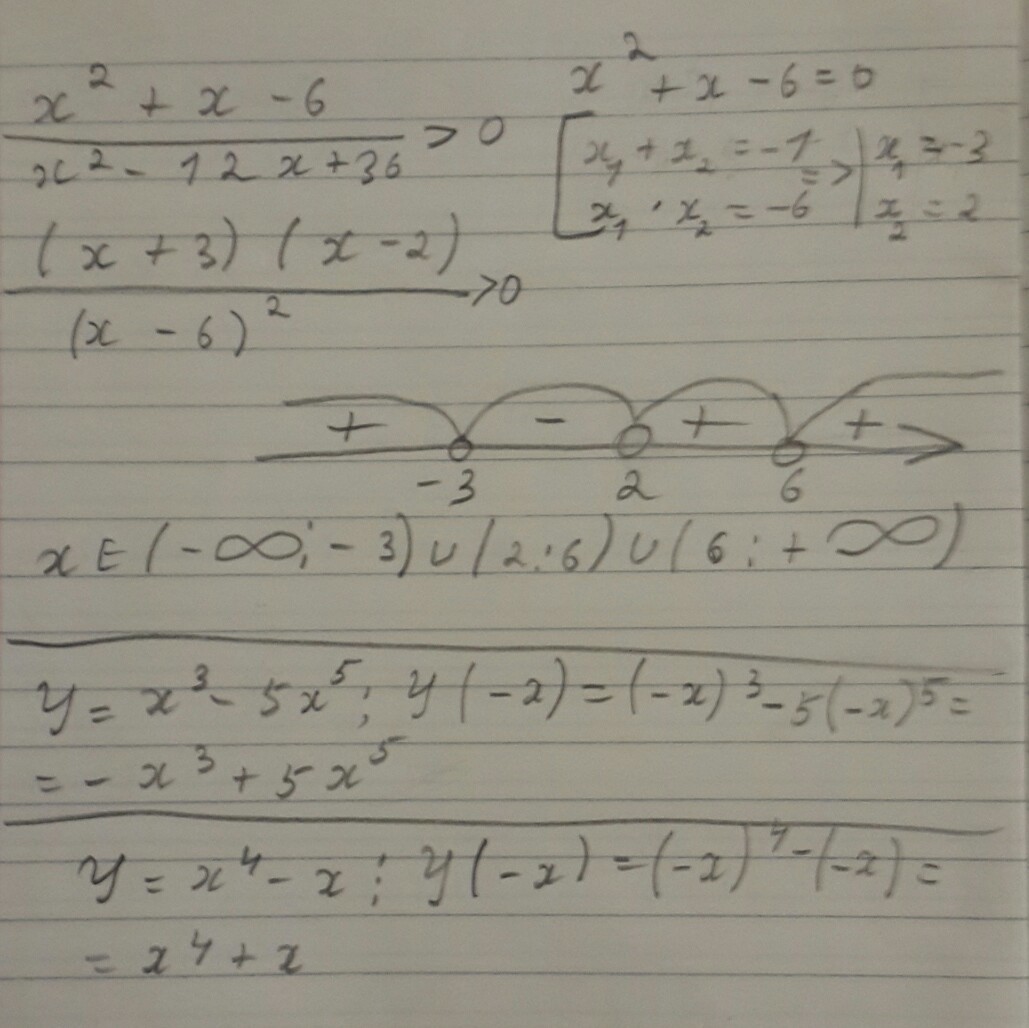 x² + x - 6 / x² - 12x + 36 > 0
x² + x - 6 = 0
[ x₁ + x₂ = -1 => | x₁ = -3
x₁ · x₂ = -6 | x₂ = 2
(x + 3) (x - 2) / (x - 6)² > 0
+ - + +
-3 2 6
x ∈ (-∞; -3) ∪ (2; 6) ∪ (6; +∞)
y = x³ - 5x⁵; y(-x) = (-x)³ - 5(-x)⁵ =
= - x³ + 5x⁵
y = x⁴ - x; y(-x) = (-x)⁴ - (-x) =
= x⁴ + x